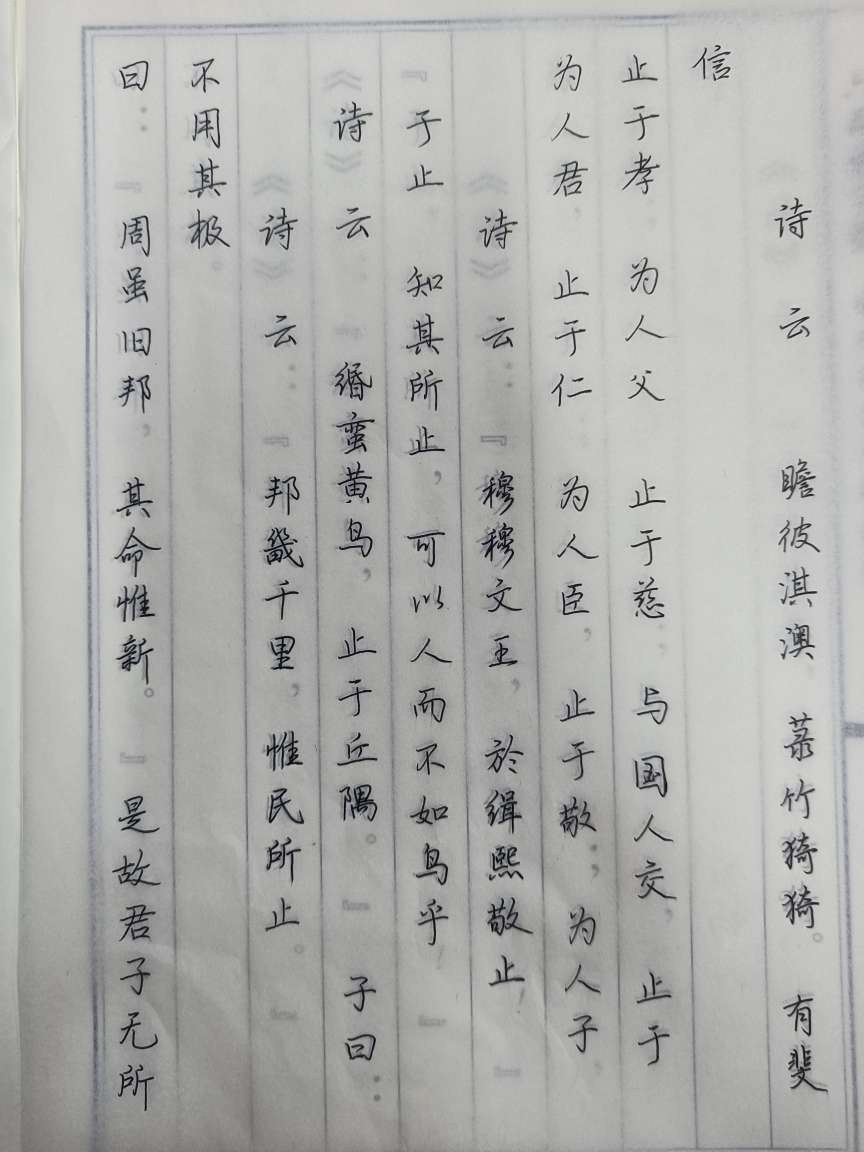 曰:『周虽旧邦,其命惟新。』是故君子无所
不用其极。
《诗》云:『邦畿千里,惟民所止。』
《诗》云:『缗蛮黄鸟,止于丘隅。』子曰:
『于止,知其所止,可以人而不如鸟乎』
《诗》云:『穆穆文王,於缉熙敬止』
为人君,止于仁 为人臣,止于敬;为人子
止于孝 为人父 止于慈,与国人交,止于
信
诗云 瞻彼淇澳 菉竹猗猗。有斐